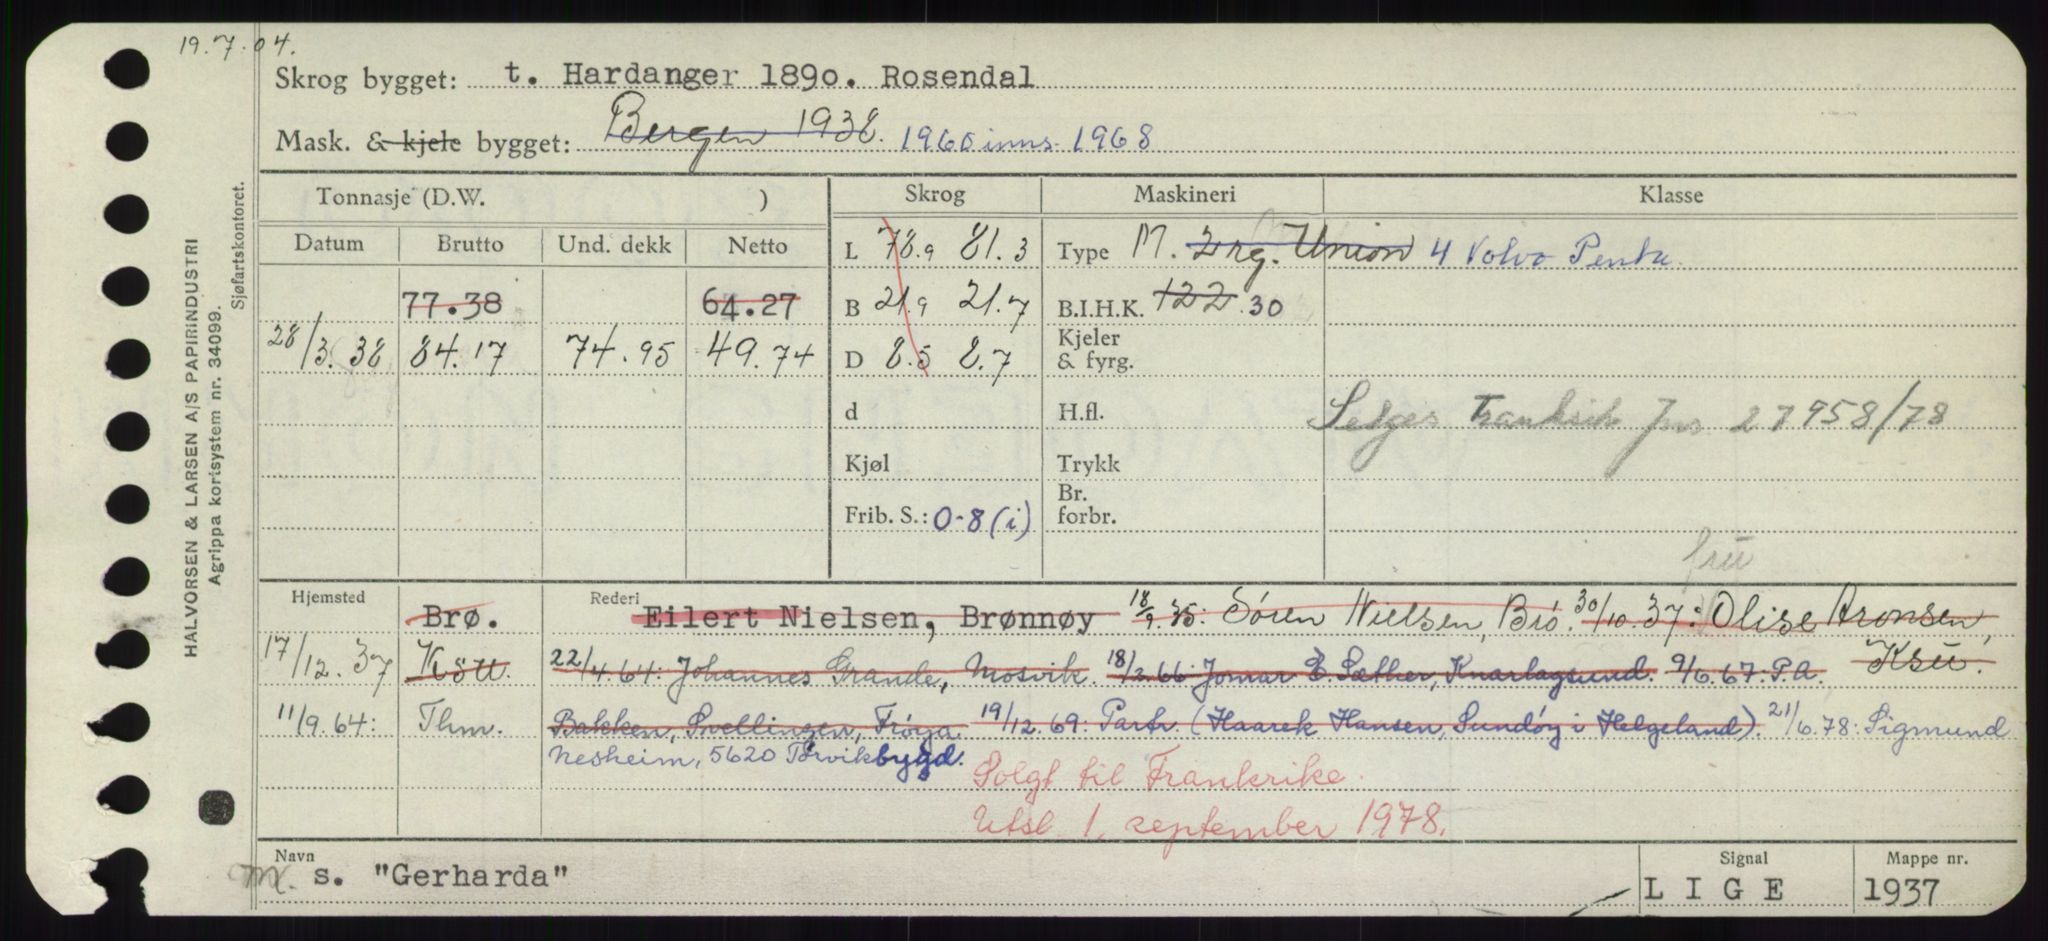 19.7.04.
Skrog bygget: t. Hardanger 1890. Rosendal
Mask. & kjele bygget: Bergen 1938. 1960 inns. 1968
Tonnasje (D.W. ) Skrog Maskineri Klasse
Datum Brutto Und. dekk Netto L 78.9 81.3 Type M. 2rg. Union 4 Volvo Penta
77.38 64.27 B 21.9 21.7 B.I.H.K. 122 30
28/3.38 84.17 74.95 49.74 D 8.5 8.7 Kjeler & fyrg.
d H.fl. Selges Frankrik Jnr 27958/78
Kjøl Trykk
Frib. S.: 0-8 (i) Br. forbr.
fru
Hjemsted Rederi
Brø. Eilert Nielsen, Brønnøy 18/9.35: Sören Nielsen, Brö. 30/10.37: Olise Aronsen,
17/12.37 Ksu. 22/4.64: Johannes Grande, Mosvik. 18/2.66: Jomar E. Sæther, Knarlagsund. 9/6.67: P.A. Ksu.
11/9.64: Thm. Bakken, Svellingen, Frøya 19/12.69: Partr. (Haarek Hansen, Sundøy i Helgeland). 21/6.78: Sigmund
Nesheim, 5620 Tørvikbygd.
Solgt til Frankrike.
Utsl. 1. september 1978.
Navn Signal Mappe nr.
m. s. "Gerharda" LIGE 1937
HALVORSEN & LARSEN A/S PAPIRINDUSTRI
Agrippa kortsystem nr. 34099.
Sjøfartskontoret.